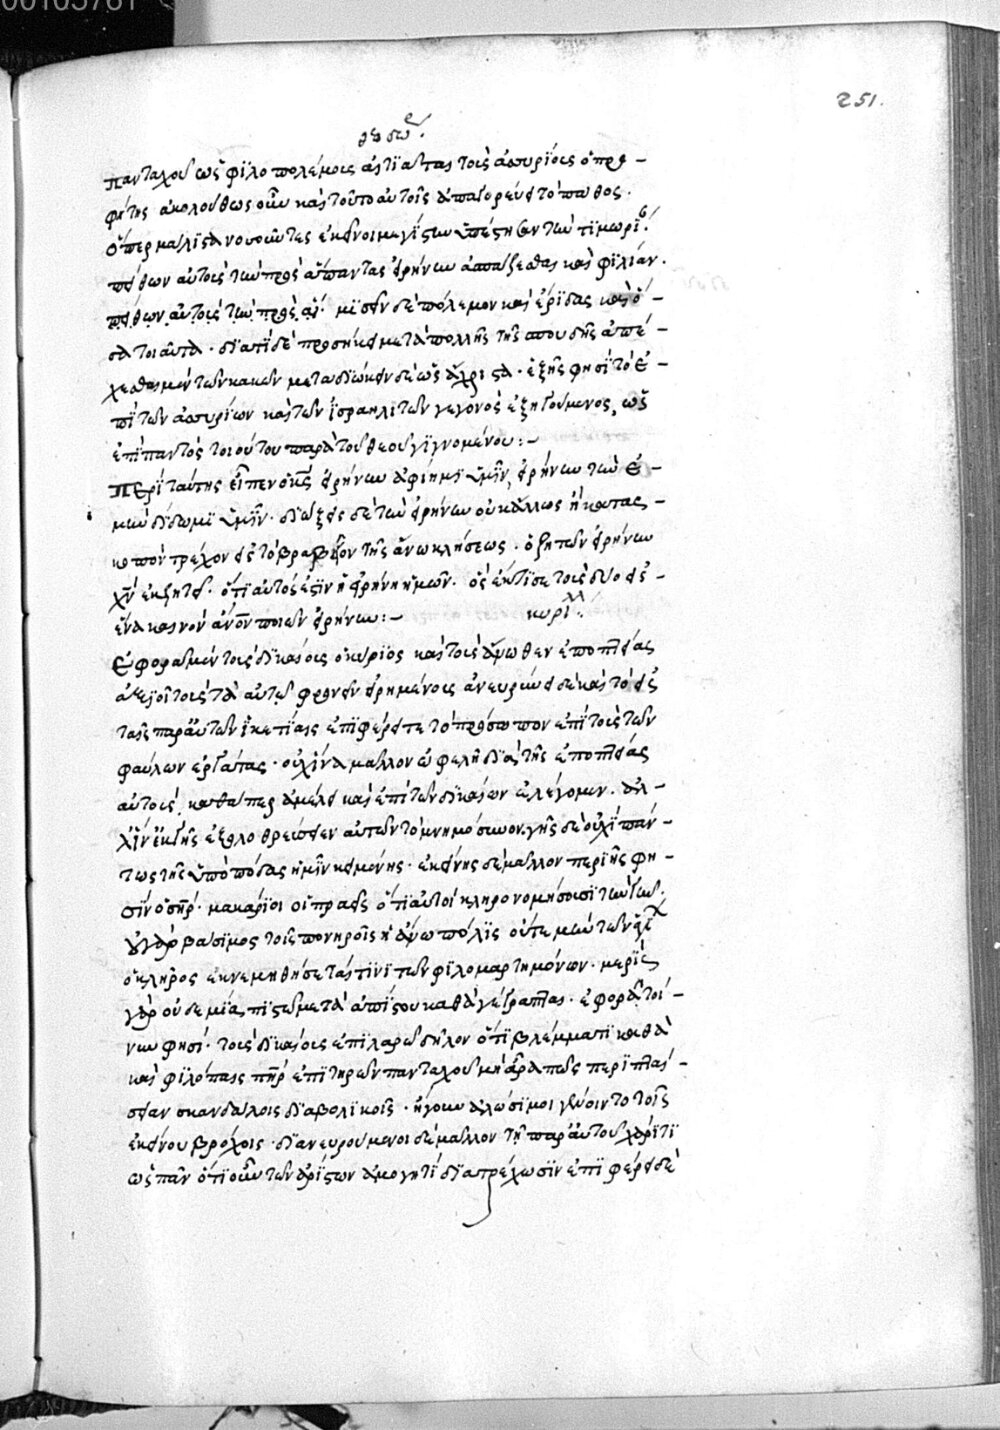 251.
πανταχοῦ ὡς φιλοπολέμοις αἰτιᾶται τοῖς ἀσυρίοις ὁ προ-
φήτης ἀκολούθως οὖν καὶ τοῦτο αὐτοῖς ἀπαγορεύει τὸ πάθος.
ὅπερ μάλιστα νοσοῦντες ἐκεῖνοι μεγίστην ὑπέστησαν τὴν τιμωρί
πείθων αὐτοὺς τὴν πρὸς ἅπαντας εἰρήνην ἀσπάζεσθαι καὶ φιλίαν.
πείθων αὐτοὺς τὴν πρὸς μισεῖν δὲ πόλεμον καὶ ἔριδας καὶ ὅ-
σα τοιαῦτα. διατί δὲ προσήκει μετὰ πολλῆς τῆς σπουδῆς ἀπέ-
χεσθαι μὲν τῶν κακῶν μεταδιώκειν δὲ ὡς ἄριστα. ἑξῆς φησὶ τὸ ἐ-
πὶ τῶν ἀσυρίων καὶ τῶν ἰσραηλιτῶν γεγονὸς ἐξηγούμενος, ὡς
ἐπὶ παντὸς τοιούτου παρὰ τοῦ θεοῦ γιγνομένου:-
Περὶ ταύτης εἶπεν ὁ κς εἰρήνην ἀφίημι ὑμῖν, εἰρήνην τὴν ἐ-
μὴν δίδωμι ὑμῖν. διώξεις δὲ τὴν εἰρήνην οὐκ ἄλλως ἢ κατας-
κοπὸν τρέχων εἰς τὸ βραβεῖον τῆς ἄνω κλήσεως. ὁ ζητῶν εἰρήνην
χν ἐκζητεῖ. ὅτι αὐτός ἐστιν ἡ εἰρήνη ἡμῶν. ὃς ἔκτισε τοὺς δύο εἰς
ἕνα καινὸν ἄνον ποιῶν εἰρήνην:- κυρίλλ.
Ἐφορᾷ μὲν τοὺς δικαίους ὁ κύριος καὶ τοὺς ἄνωθεν ἐποπτείας
ἀξιοῖ τοὺς τὰ αὐτοῦ φρονεῖν εἰρημένοις ἀνευρύνει δὲ καὶ τὸ εἰς
ταῖς παρ αὐτῶν ἱκετίαις ἐπιφέρει τε τὸ πρόσωπον ἐπὶ τοὺς τῶν
φαύλων ἐργάτας. οὐχ ἵνα μᾶλλον ὠφελῇ διὰ τῆς ἐποπτείας
αὐτούς, καθάπερ ἀμέλει καὶ ἐπὶ τῶν δικαίων ἐλέγομεν. ἀλ-
λ ἵν ἐκ γῆς ἐξολοθρεύσειεν αὐτῶν τὸ μνημόσυνον. γῆς δὲ οὐχὶ πάν-
τως τῆς ὑπὸ πόδας ἡμῖν κειμένης. ἐκείνης δὲ μᾶλλον περὶ ἧς φη-
σὶν ὁ σηρ. μακάριοι οἱ πραεῖς ὅτι αὐτοὶ κληρονομήσουσι τὴν γῆν.
οὐ γὰρ βάσιμος τοῖς πονηροῖς ἡ ἄνω πόλις οὔτε μὴν τῶν ἁγί
ὁ κλῆρος ἐκνεμηθήσεταί τινι τῶν φιλαμαρτημόνων. μερὶς
γὰρ οὐδεμία, πιστῷ μετὰ ἀπίστου καθὰ γέγραπται. ἐφορᾷ τοί-
νυν φησί. τοὺς δικαίους ἐπιλαρῷ δῆλον ὅτι βλέμματι καθὰ
καὶ φιλόπαις πηρ ἐπιτηρῶν πανταχοῦ μὴ ἄρα πως περιπταί-
σειαν σκανδάλοις διαβολικοῖς. ἤγουν ἁλώσιμοι γένοιντο τοῖς
ἐκείνου βρόχοις. διανευρούμενοι δὲ μᾶλλον τῇ παρ αὐτοῦ χάριτι
ὡς πᾶν ὁτιοῦν τῶν ἀρίστων ἀμογητὶ διατρέχωσιν ἐπιφέρει δὲ